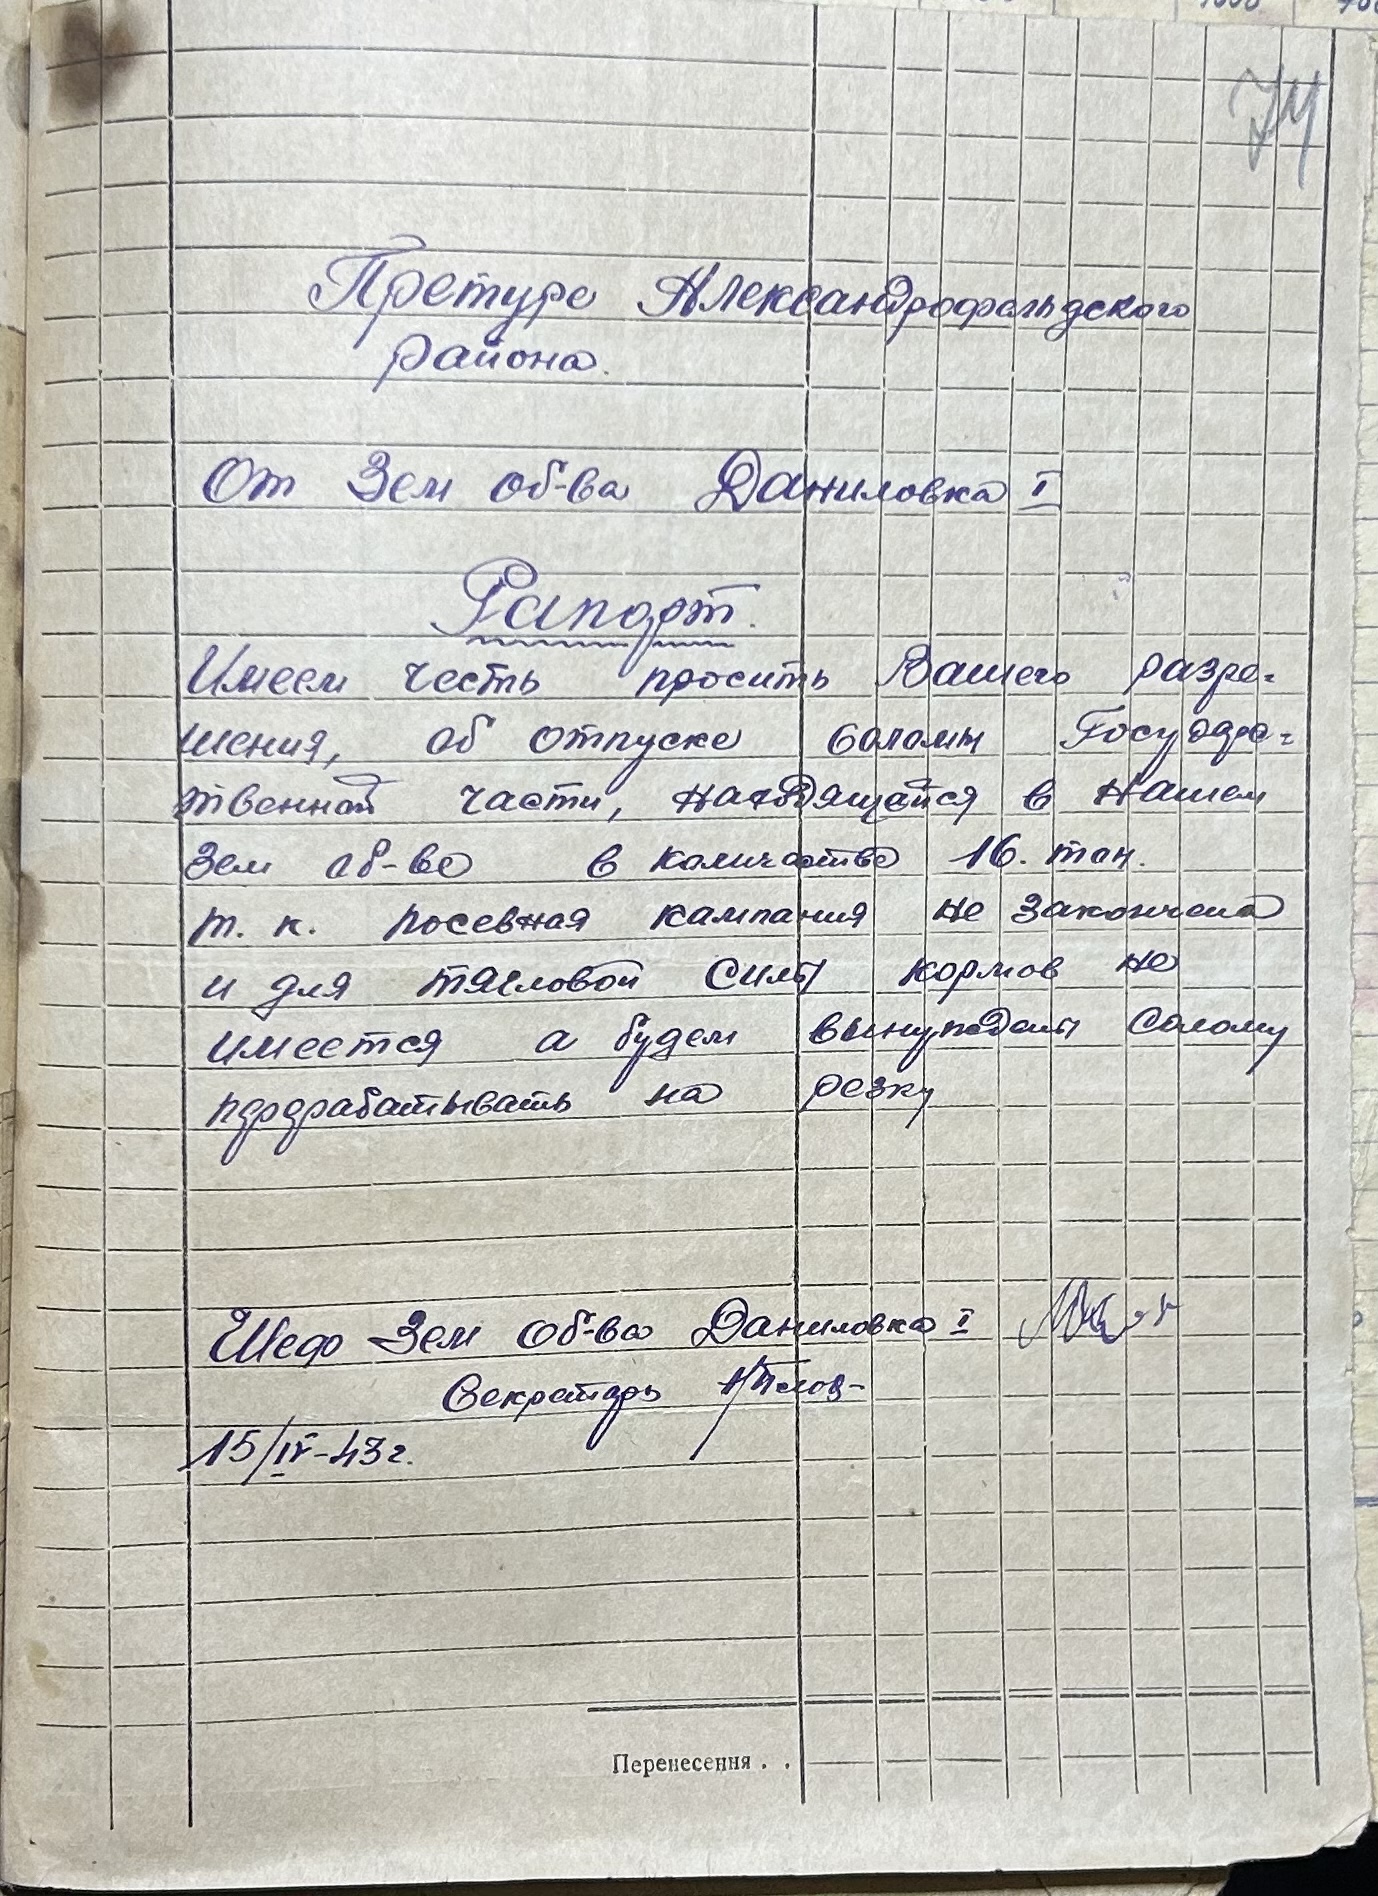 74
Претуре Александрофельдского
района.
От Зем об-ва Даниловка I
Рапорт.
Имеем честь просить Вашего разре-
шения, об отпуске соломы Государс-
твенной части, находящейся в нашем
Зем об-ве в количестве 16. тон.
т. к. посевная кампания не закончена
и для тягловой силы кормов не
имеется а будем вынуждены солому
перерабатывать на резку
Шеф Зем Об-ва Даниловка I
Секретарь
15/IV-43 г.
Перенесення . .